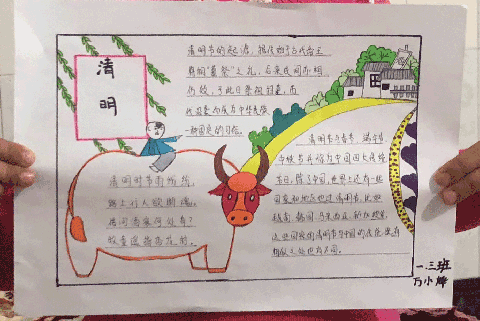 清明
清明节的起源，据传始于古代帝王
将相“墓祭”之礼，后来民间亦相
仿效，于此日祭祖扫墓，
代沿袭而成为中华民族
一种固定的风俗。
清明节与春节、端午节、
中秋节并称为中国四大传统
节日。除了中国，世界上还有一些
国家和地区也过清明节，比如
越南、韩国、马来西亚、新加坡等。
清明时节雨纷纷，
路上行人欲断魂。
借问酒家何处有？
牧童遥指杏花村。
一.三班
万小